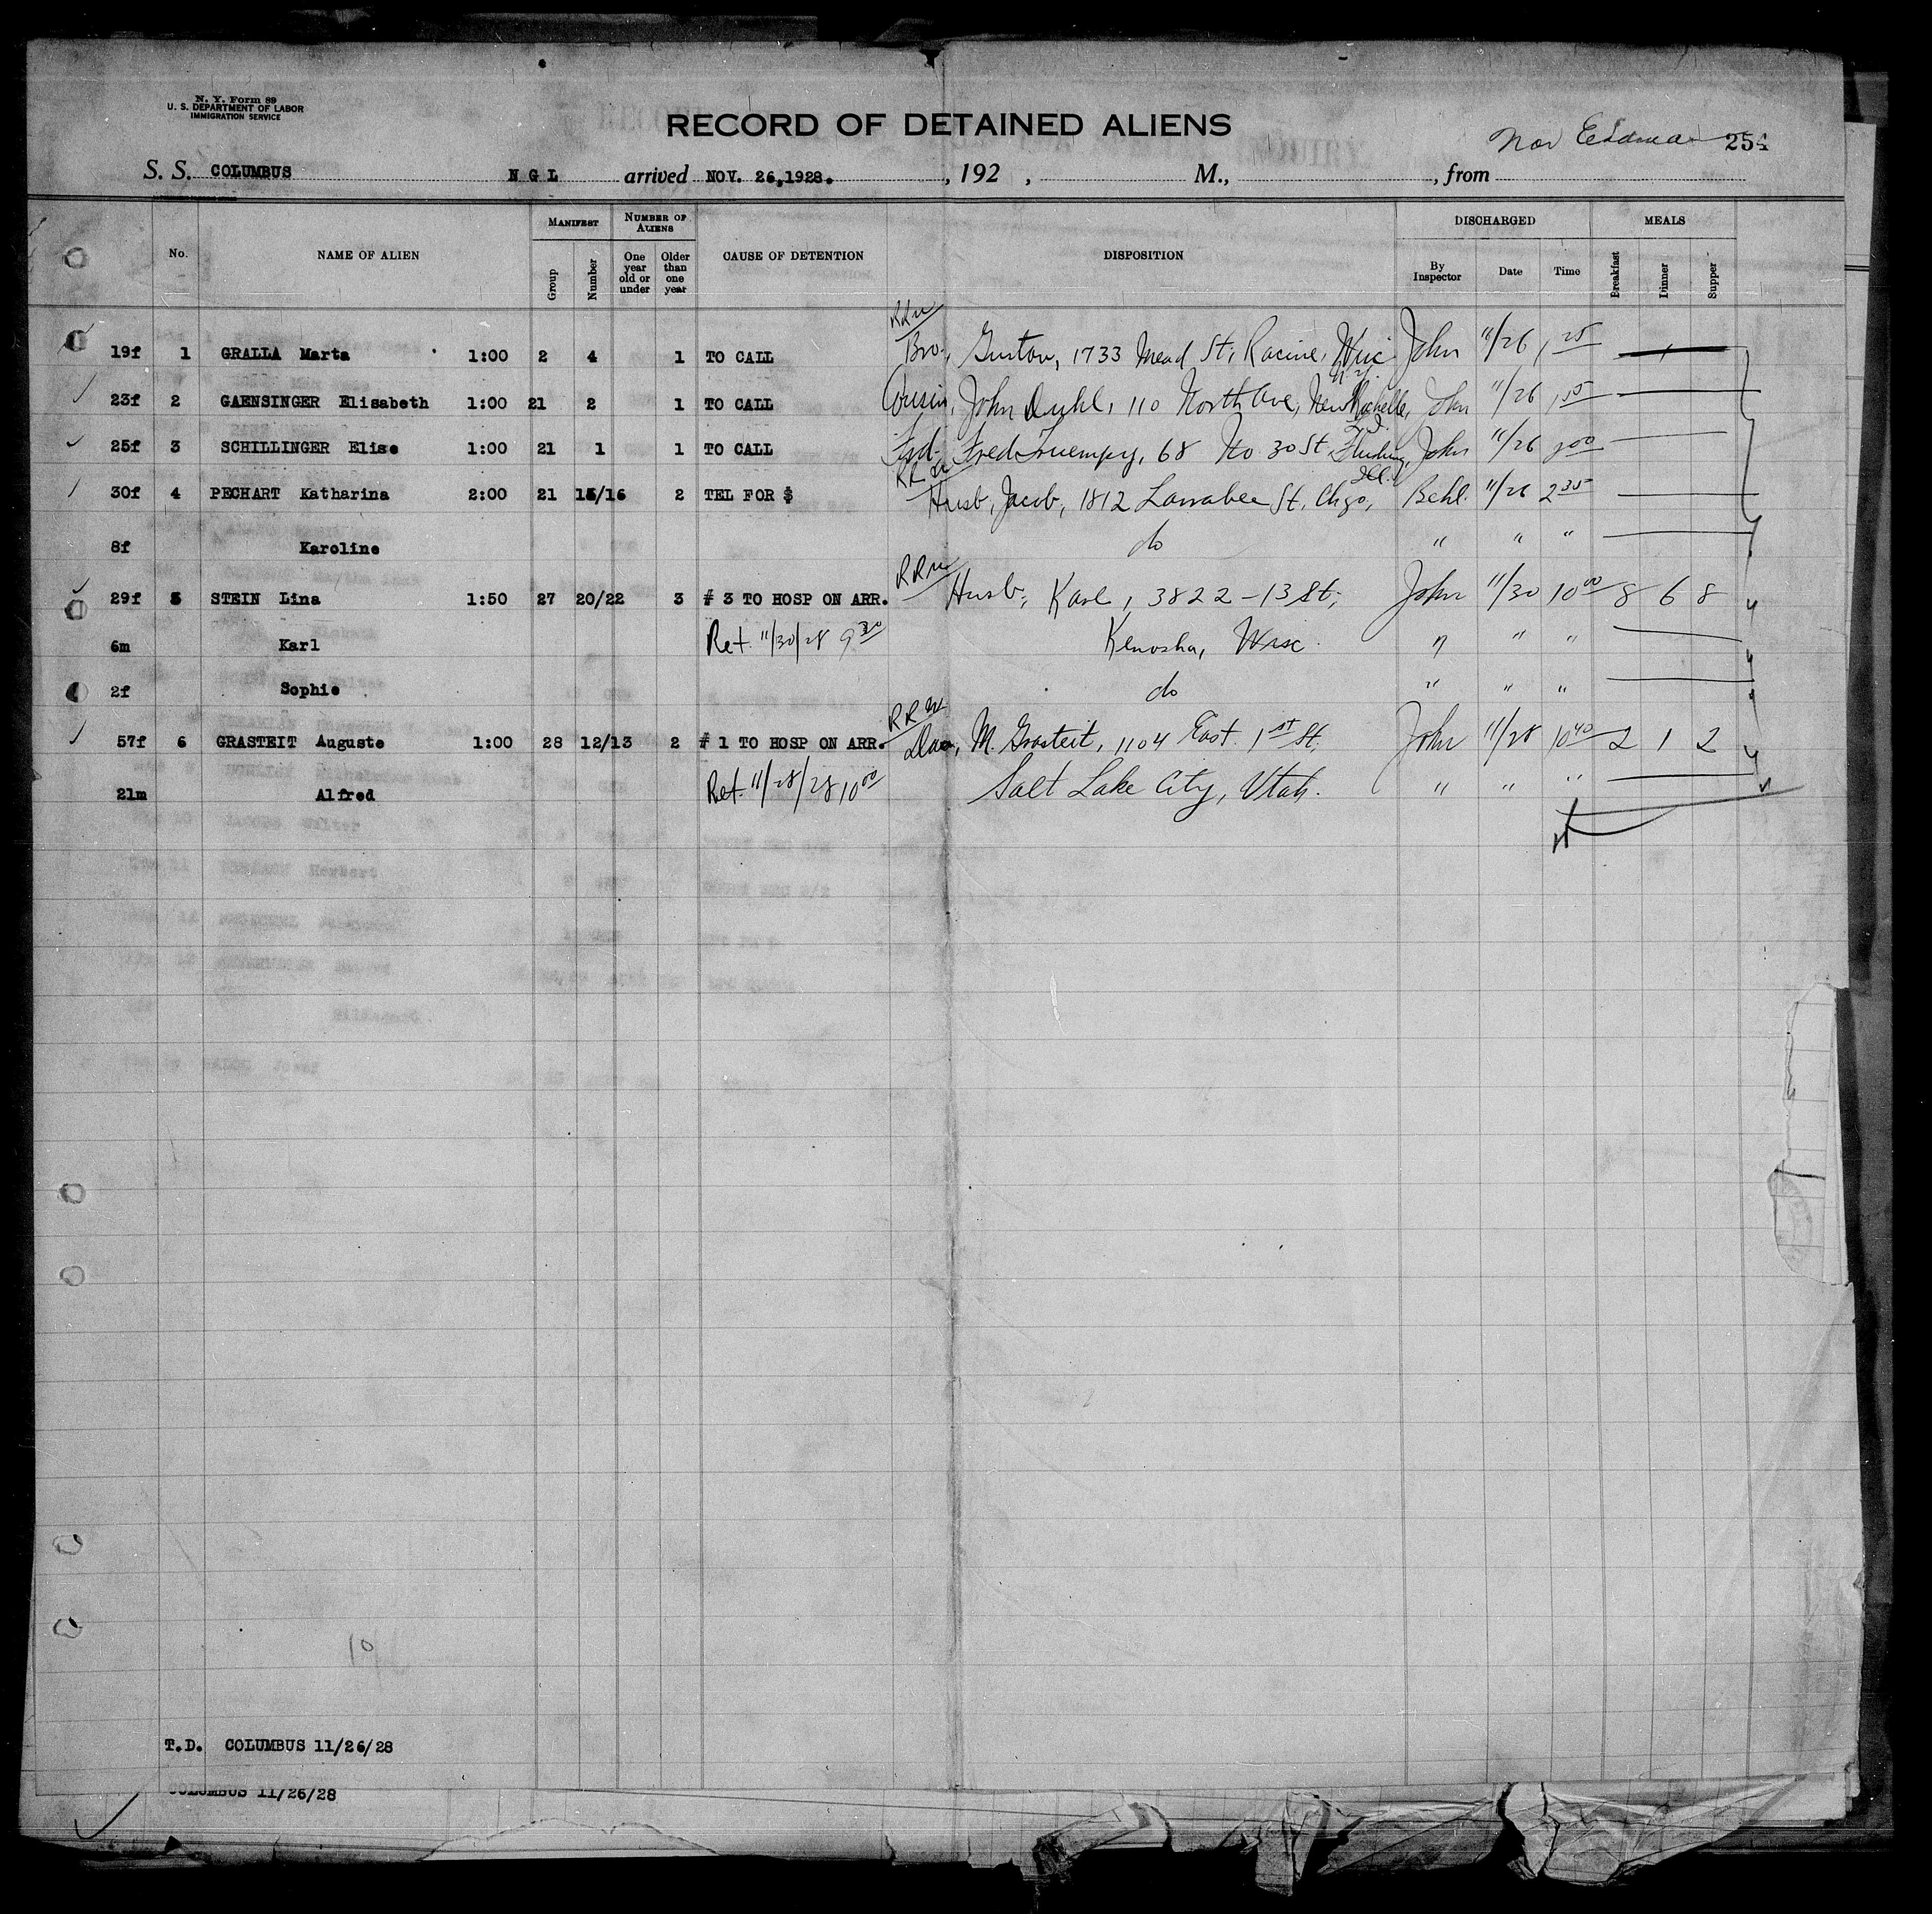 N. Y. Form 89
U. S. DEPARTMENT OF LABOR
IMMIGRATION SERVICE
RECORD OF DETAINED ALIENS
254
S. S. COLUMBUS N G L arrived NOV. 26,1928. , 192 , M., , from
No. NAME OF ALIEN MANIFEST Group Number NUMBER OF ALIENS One year old or under Older than one year CAUSE OF DETENTION DISPOSITION DISCHARGED By Inspector Date Time MEALS Breakfast Dinner Supper
19f 1 GRALLA Marta 1:00 2 4 1 TO CALL Bro, Gustav, 1733 Mead St, Racine, Wisc John 11/26 1 25
23f 2 GAENSINGER Elisabeth 1:00 21 2 1 TO CALL Cousin, John 110 North Ave, New Rochelle, N.Y. John 11/26 1
25f 3 SCHILLINGER Elise 1:00 21 1 1 TO CALL Frd. Fred 68 No. 30 St, Flushing, L.I. John 11/26
30f 4 PECHART Katharina 2:00 21 15/16 2 TEL FOR $ Husb, Jacob, 1812 Larrabee St, Chgo, Ill. Behl. 11/26 2 35
8f Karoline do " " "
29f 5 STEIN Lina 1:50 27 20/22 3 # 3 TO HOSP ON ARR. RRW Husb, Karl, 3822-13 St, John 11/30 10 00 8 6 8
6m Karl Ret 11/30/28 9 30 Kenosha, Wisc. " " "
2f Sophie do " " "
57f 6 GRASTEIT Auguste 1:00 28 12/13 2 # 1 TO HOSP ON ARR. RRW Dau, M. Grasteit, 1104 East 1st St. John 11/28 10 40 2 1 2
21m Alfred Ret 11/28/28 10 00 Salt Lake City, Utah. " " "
10
T.D. COLUMBUS 11/26/28
COLUMBUS 11/26/28